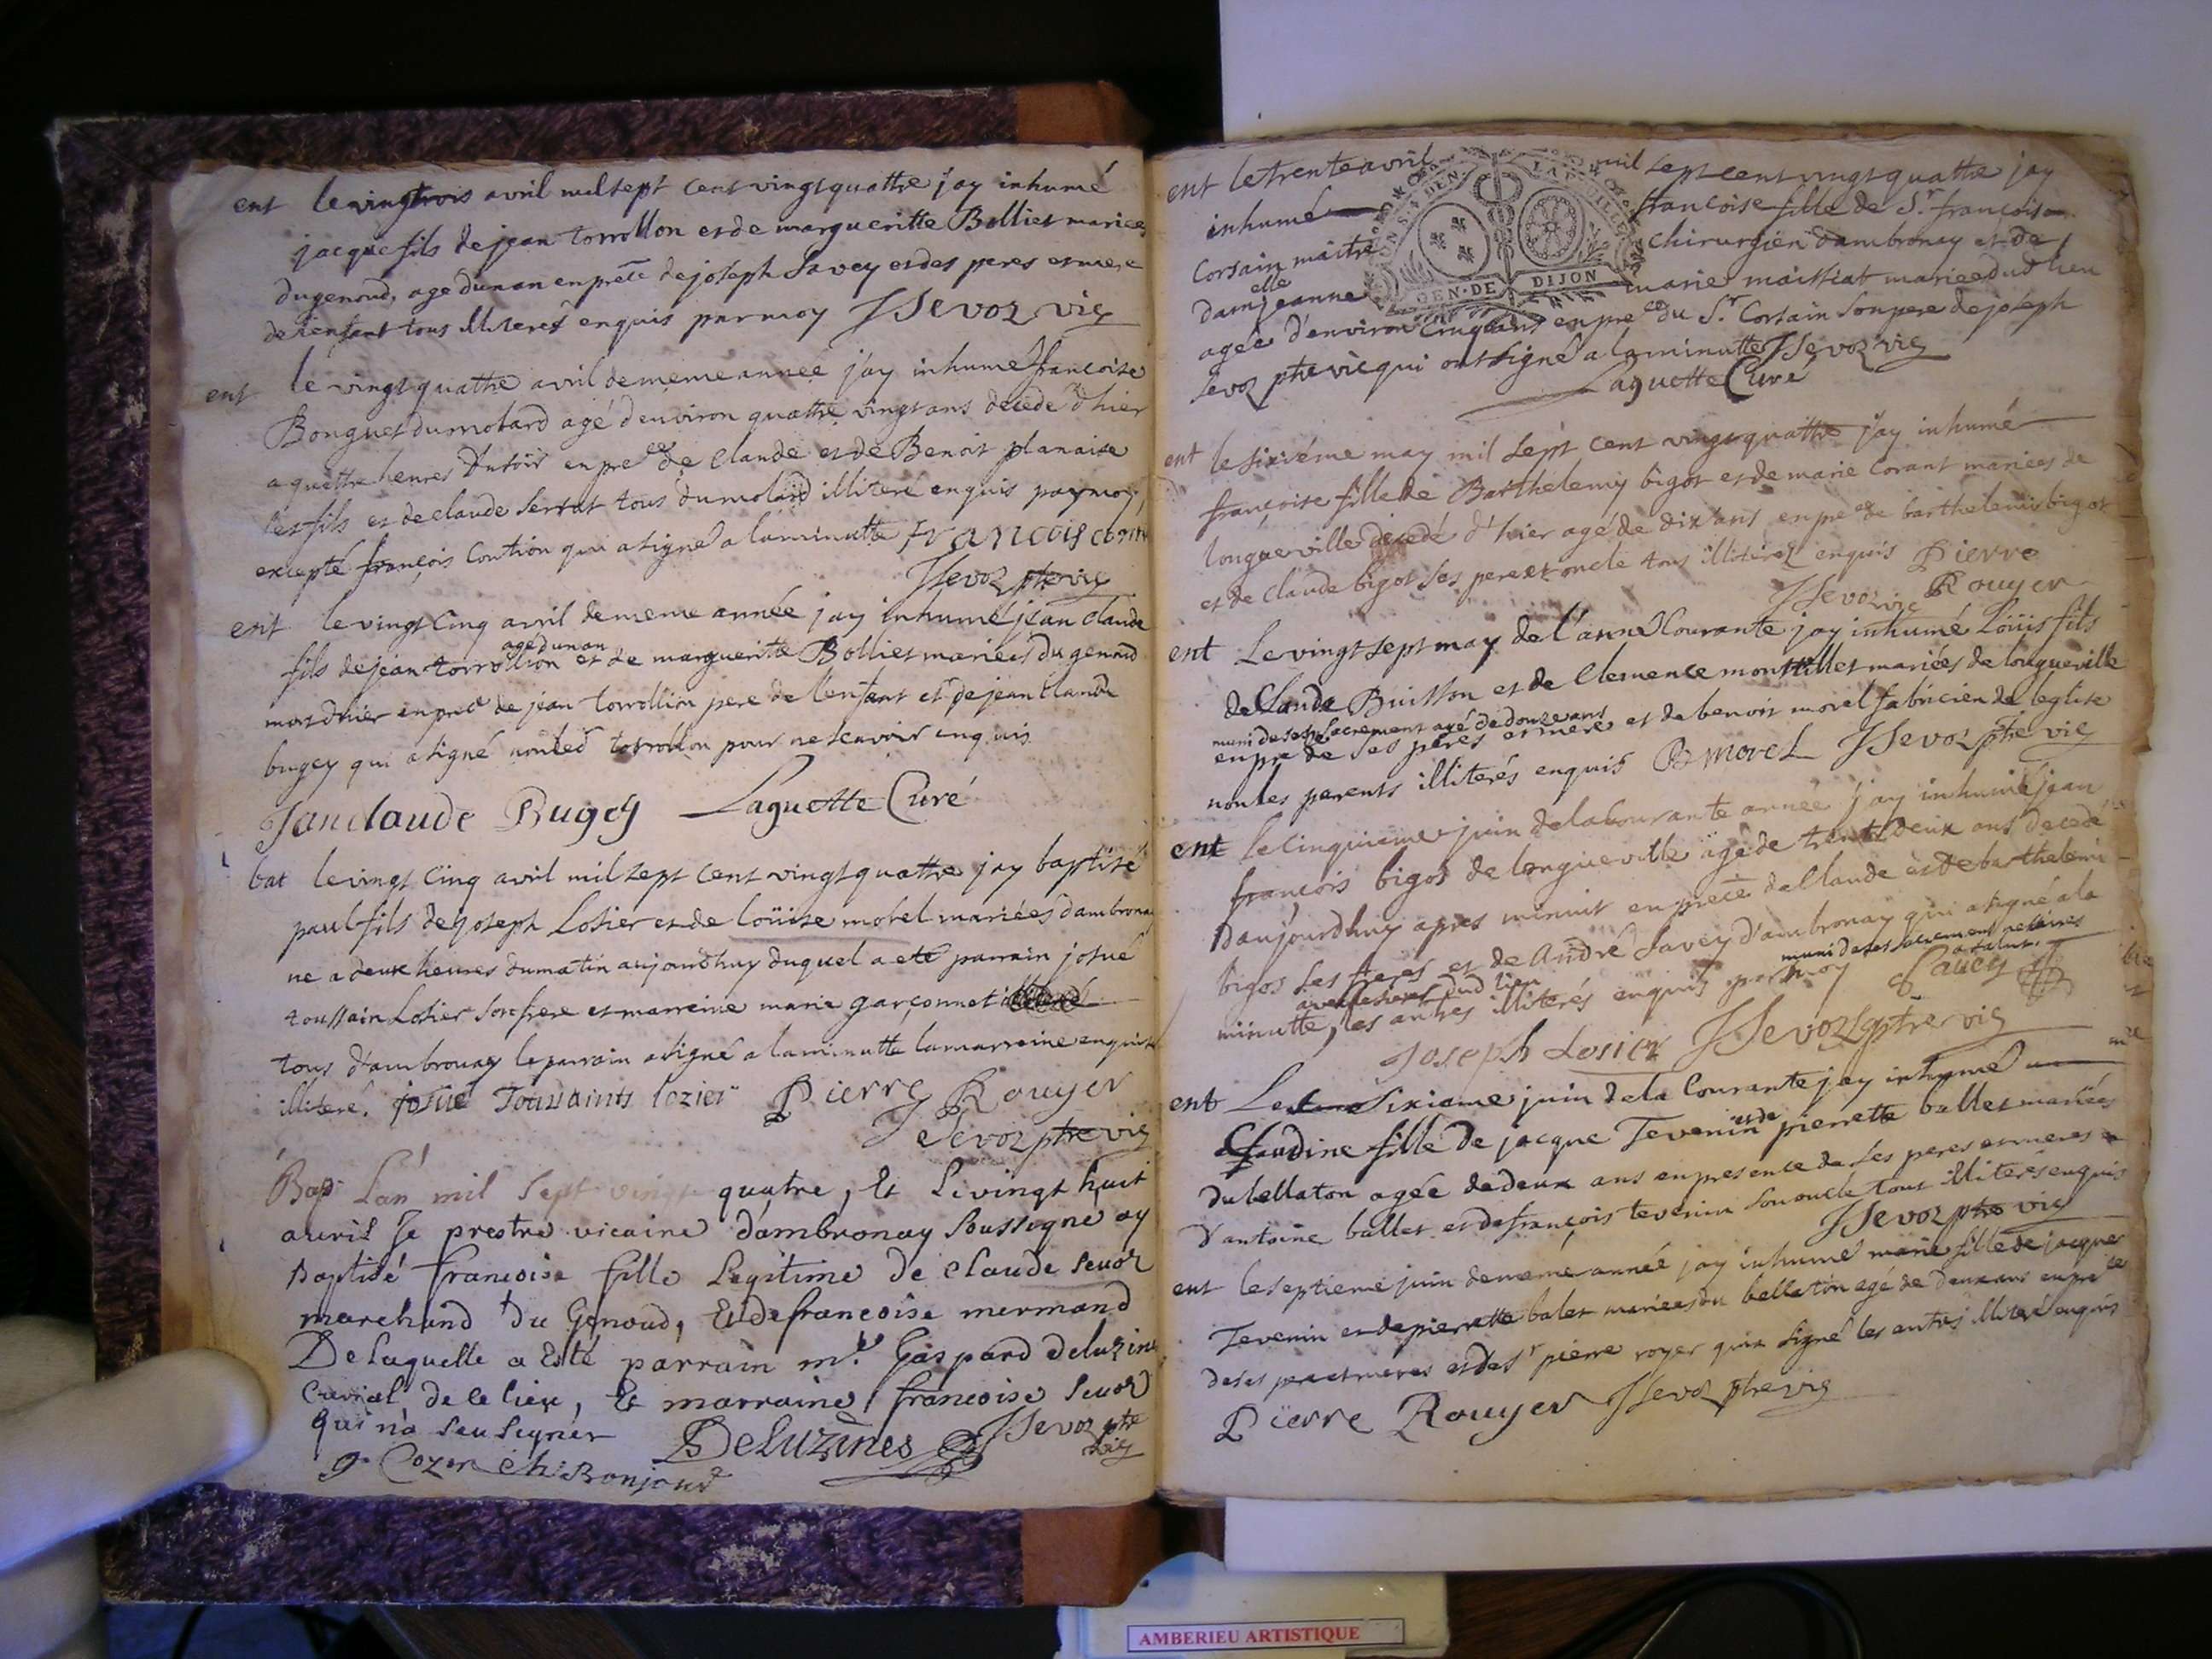 ent le vingt trois avril mil sept cent vingt quattre j'ay inhumé
jacque fils de jean torrollon et de margueritte Bollier mariees
du genoud, agé d'un an en pre^ce de joseph Savey et des peres et mere
de l'enfant tous illiterés enquis par moy JSevoz vic
ent le vingt quattre avril de meme année j'ay inhumé francoise
Bonguet du molard agé d'environ quattre vingt ans decedé d'hier
a quattre heures du soir en pre^ce de claude et de Benoit planaise
ses fils et de claude Serrat tous du molard illiteré enquis par moy,
excepté françois Contion qui a signé a la minutte FranCois
JSevoz ptre vic
ent le vingt cinq avril de meme année j'ay inhumé jean claude
agé d'un an
fils de jean torrollion et de margueritte Bollier mariees du genoud
mort d'hier en pre^ce de jean torrollion pere de l'enfant et de jean claude
bugey qui a signé non led torrollon pour ne scavoir enquis
Janclaude Bugey Laguette Curé
bat le vingt cinq avril mil sept cent vingt quattre j'ay baptisé
paul fils de joseph Losier et de loüise morel mariées d'ambronay
ne a deux heures du matin aujourd'huy duquel a eté parrain josué
toussain Losier son frere et marreine marie garçonnet
tous d'ambronay le parrain a signé a la minutte la marreine enquise
illiteré. josué Toussaints lozier Pierre Rouyer
JSevoz ptre vic
Bap L'an mil Sept vingt quatre, Et Le vingt huit
auril Je prestre vicaire d'ambronay Soussigné ay
Baptisé francoise fille Legitime de claude Seuoz
marchand Du Genoud, Et de francoise mermand
De Laquelle a Esté parrain m^e Gaspard Deluzine
Curial de ce lieu, Et marraine francoise Seuoz
qui n'a Seu Signer DeLuzines JSevoz ptre vic
g. Cozon Ch: Bonjour
ent le trente avril mil sept cent vingt quattre j'ay
inhumé francoise fille de S^r. françois
Corsain maitre chirurgien d'ambronay et de
dam^elle jeanne marie maissiat mariee dud lieu
GEN · DE DIJON
agée d'environ cinq ans en pre^ce du S^r. Corsain son pere de joseph
Sevoz ptre vic qui ont signé a la minutte JSevoz vic
Laguette Curé
ent le sixiéme may mil sept cent vingt quattre j'ay inhumé
françoise fille de Barthelemy bigot et de marie Corant mariées de
longueville decedé d'hier agé de dix ans en pre^ce de barthelemi bigot
et de claude bigot ses pere et oncle tous illiterez enquis Pierre
JSevoz vic Rouyer
ent Le vingt sept may de l'année Courante j'ay inhumé Loüis fils
de Claude Buisson et de Clemence montillet mariées de longueville
muni de ses Sacrement agé de douze ans
en pre^ce de ses peres et mere et de benoit morel fabricien de l'eglise
non les parents illiterés enquis B morel JSevoz ptre vic
ent Le Cinquieme juin de la Courante année j'ay inhumé jean
françois bigot de longueville agé de trente deux ans decedé
D'aujourd'huy apres minuit en pre^ce de Claude et de barthelemi
bigot ses freres et de André Savey d'ambronay qui a signé a la
minutte, les autres illiterés enquis par moy muni de ses sacrement
Savey
Joseph Losier JSevoz ptre vic
ent Le Sixieme juin de la Courante j'ay inhumé
Claudine fille de jacque Tevenin et de pierrette ballet mariées
du bellaton agée de deux ans en presence de ses peres et meres
d'antoine ballet et de françois tevenin son oncle tous illiterés enquis
JSevoz ptre vic
ent le septieme juin de meme année j'ay inhumé marie fille de jacque
Tevenin et de pierrette balet mariees du bellaton agé de deux ans en pre^ce
de ses pere et meres et de S^r pierre royer qui a signé les autres illiteré enquis
Pierre Rouyer JSevoz ptre vic
AMBERIEU ARTISTIQUE